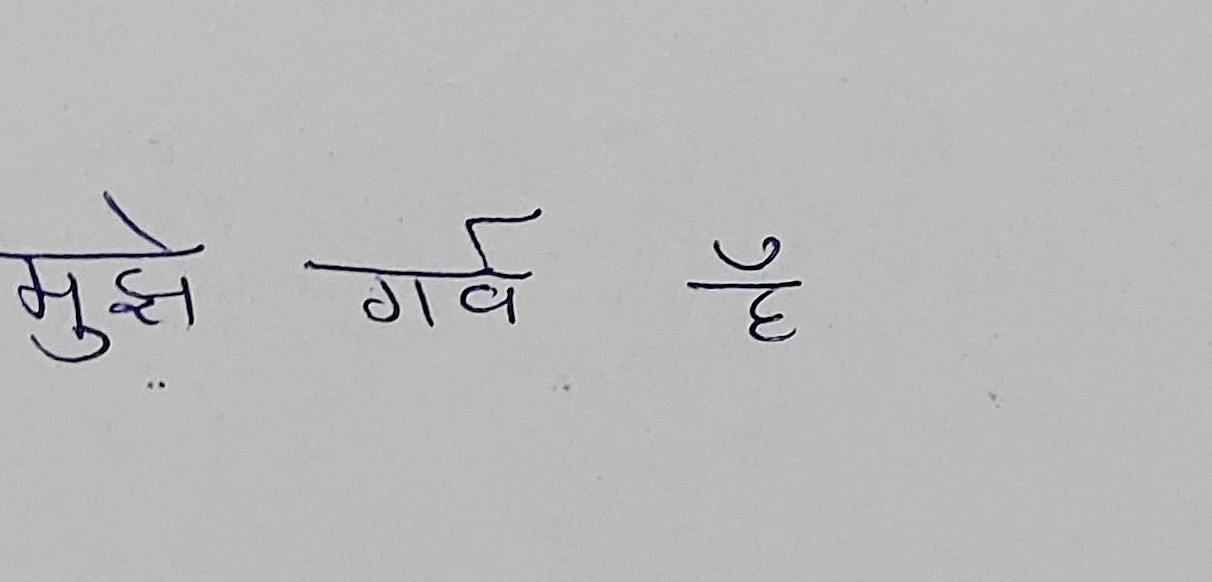 मुझे गर्व हैं